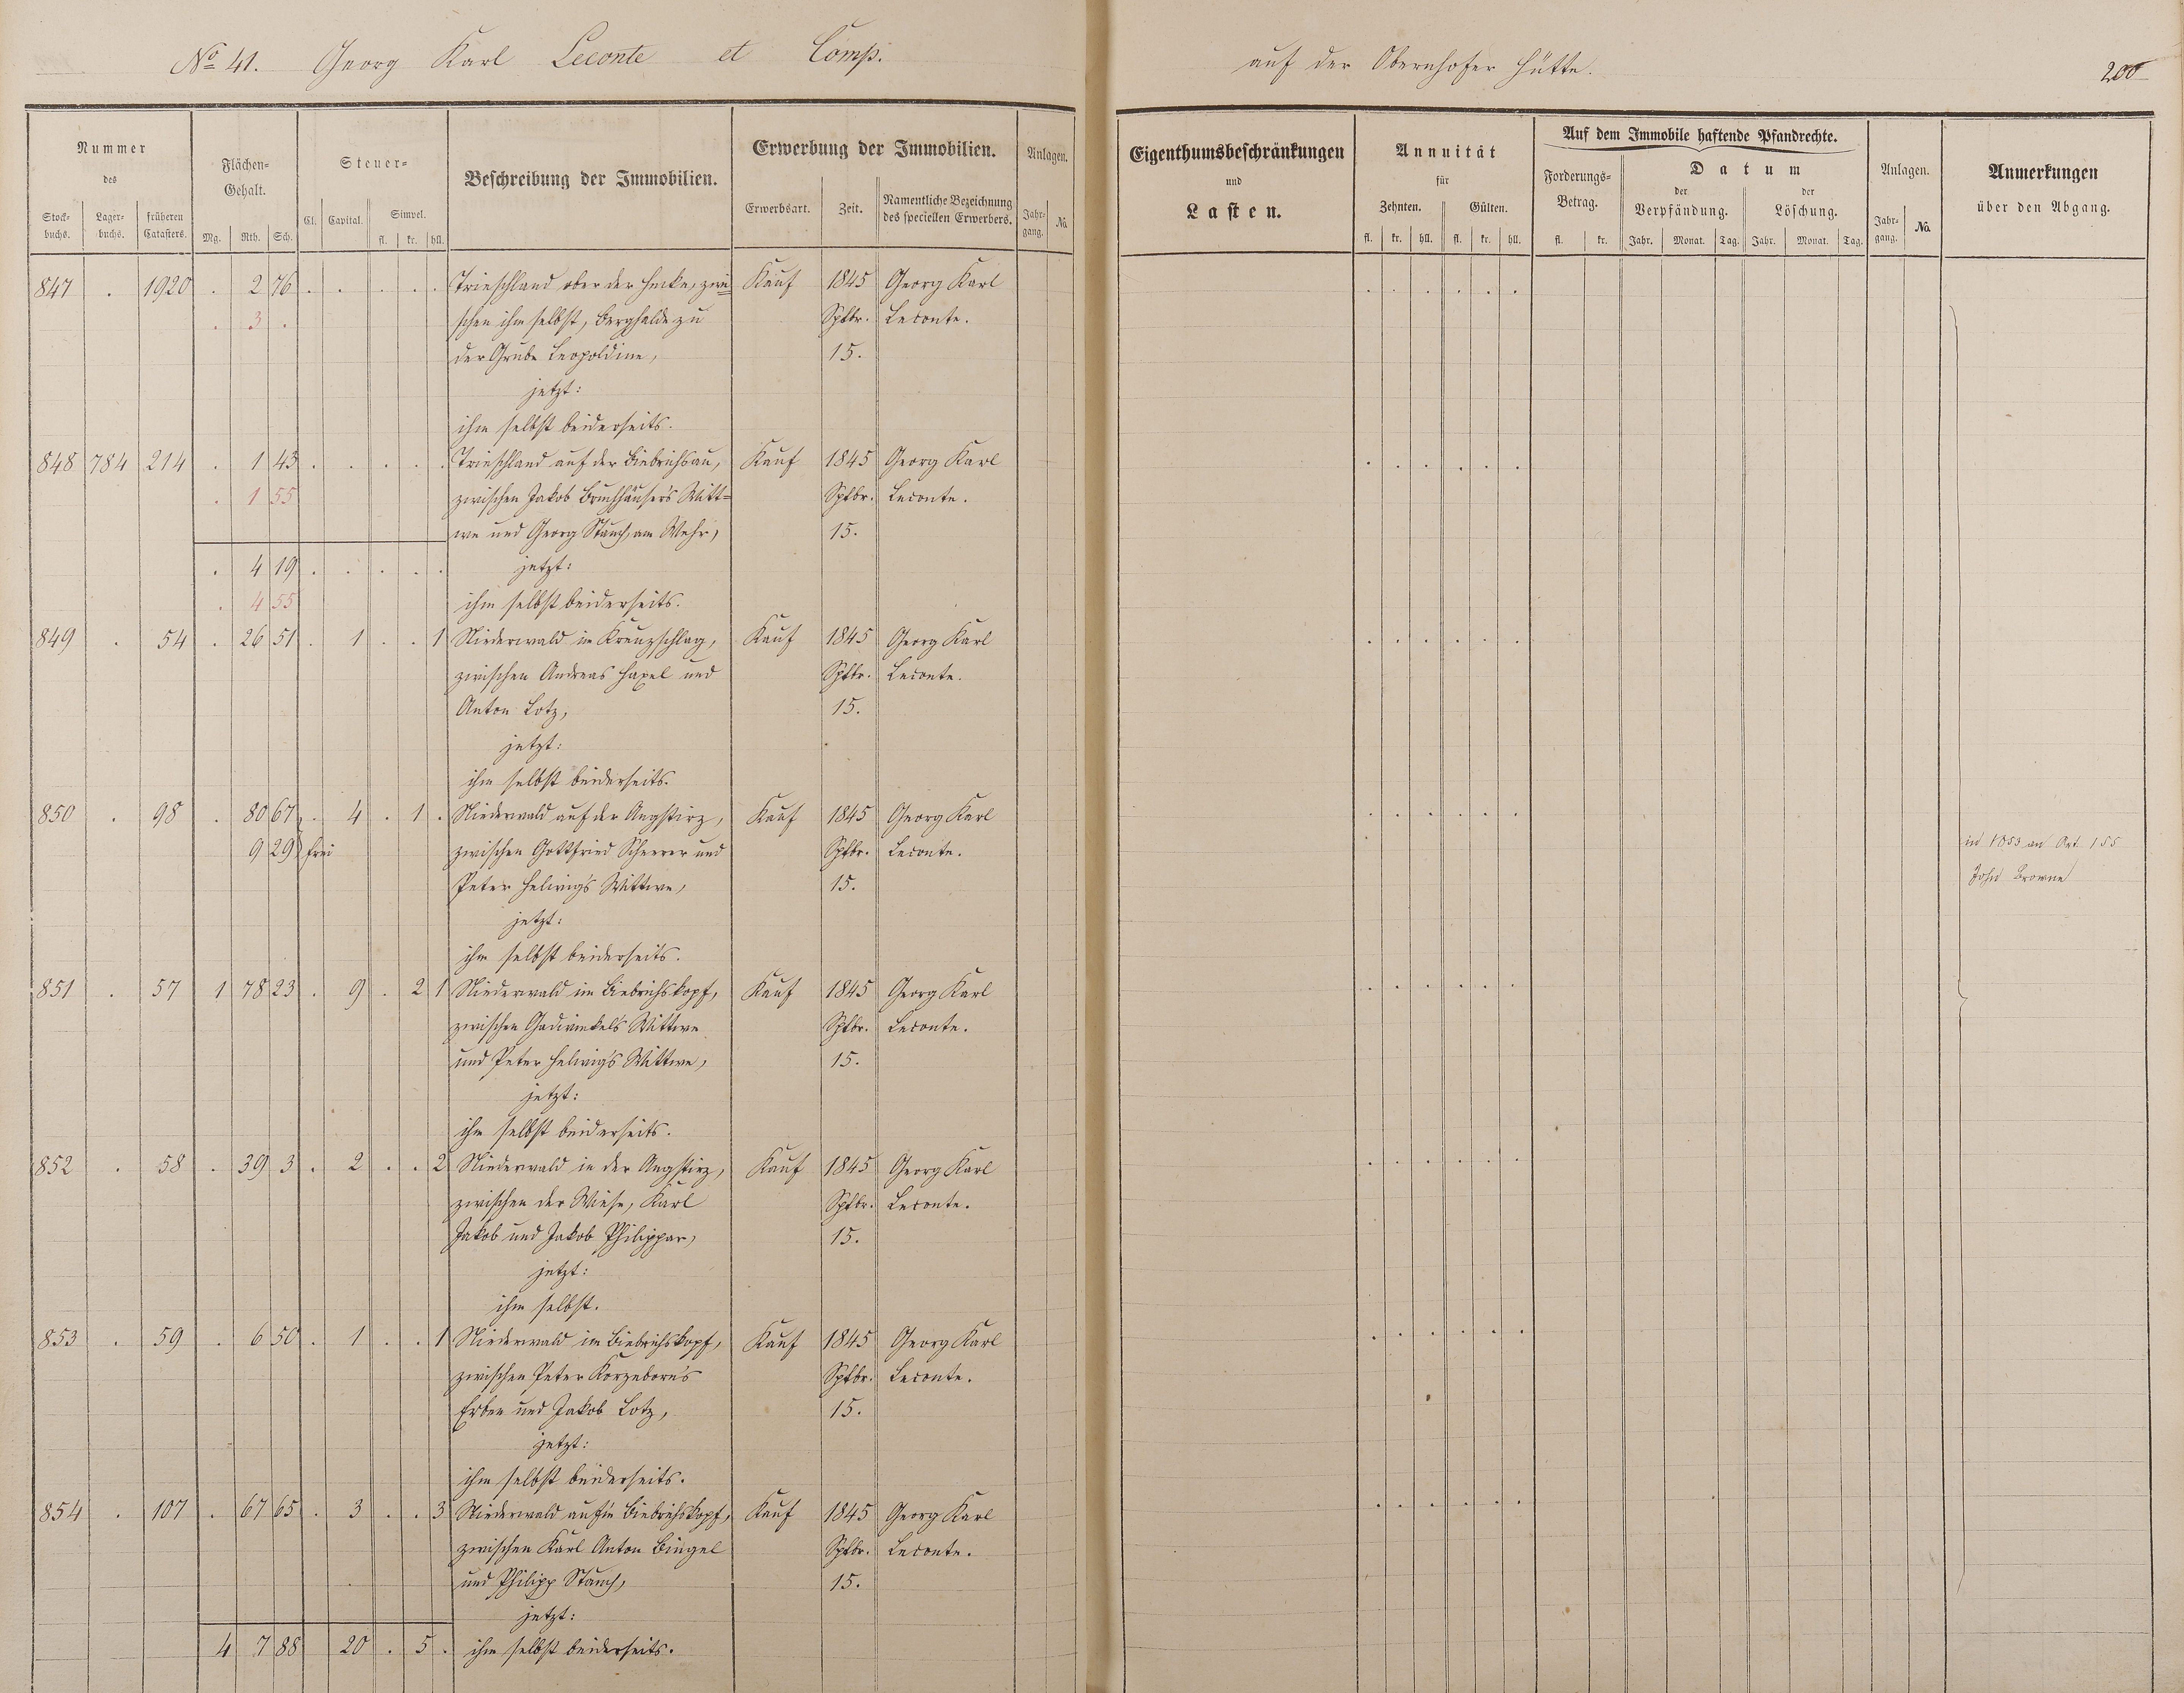 No 41. Georg Karl Leconte et Comp. auf der Obernhofer Hütte. 200
Nummer des
Stockbuchs. Lagerbuchs. früheren Catasters.
Flächen-Gehalt.
Mg. Rth. Sch.
Steuer-
Cl. Capital. Simpel.
fl. kr. hll.
Beschreibung der Immobilien.
Erwerbung der Immobilien.
Erwerbsart. Zeit. Namentliche Bezeichnung des speciellen Erwerbers.
Anlagen.
Jahrgang. No.
Eigenthumsbeschränkungen
und
Lasten.
Annuität
für
Zehnten. Gülten.
fl. kr. hll. fl. kr. hll.
Auf dem Immobile haftende Pfandrechte.
Forderungs-Betrag.
fl. kr.
Datum
der Verpfändung. der Löschung.
Jahr. Monat. Tag. Jahr. Monat. Tag.
Anlagen.
Jahrgang. No.
Anmerkungen
über den Abgang.
847 . 1920 . 2 76 . . . . . Trieschland ober der Hecke, zwi= Kauf 1845 Georg Karl . . . . . .
. 3 . schen ihm selbst, Berghalde zu Sptbr. Leconte.
der Grube Leopoldine, 15.
jetzt:
ihm selbst beiderseits.
848 784 214 . 1 43 . . . . . Trieschland auf der Biebrichsau, Kauf 1845 Georg Karl . . . . . .
. 1 55 zwischen Jakob Bruchhäuser's Witt= Sptbr. Leconte.
we und Georg Stauch, am Wehr, 15.
. 4 19 . . . . . jetzt:
. 4 55 ihm selbst beiderseits.
849 . 54 . 26 51 . 1 . . 1 Niederwald im Kreuzschlag, Kauf 1845 Georg Karl . . . . . .
zwischen Andreas Haxel und Sptbr. Leconte.
Anton Lotz, 15.
jetzt:
ihm selbst beiderseits.
850 . 98 . 80 67 . 4 . 1 . Niederwald auf der Angstirz, Kauf 1845 Georg Karl . . . . . .
9 29 frei zwischen Gottfried Scheerer und Sptbr. Leconte. in 1853 an Art. 155
Peter Helwig's Wittwe, 15. John Browne
jetzt:
ihm selbst beiderseits.
851 . 57 1 78 23 . 9 . 2 1 Niederwald im Biebrichskopf, Kauf 1845 Georg Karl . . . . . .
zwischen Wittwe Sptbr. Leconte.
und Peter Helwig's Wittwe, 15.
jetzt:
ihm selbst beiderseits.
852 . 58 . 39 3 . 2 . . 2 Niederwald in der Angstirz, Kauf 1845 Georg Karl . . . . . .
zwischen der Wiese, Karl Sptbr. Leconte.
Jakob und Jakob Philippar, 15.
jetzt:
ihm selbst.
853 . 59 . 6 50 . 1 . . 1 Niederwald im Biebrichskopf, Kauf 1845 Georg Karl . . . . . .
zwischen Peter Korzeborn's Sptbr. Leconte.
Erben und Jakob Lotz, 15.
jetzt:
ihm selbst beiderseits.
854 . 107 . 67 65 . 3 . . 3 Niederwald auf'm Biebrichskopf, Kauf 1845 Georg Karl . . . . . .
zwischen Karl Anton Bingel Sptbr. Leconte.
und Philipp Stauch, 15.
jetzt:
4 7 88 20 . 5 . ihm selbst beiderseits.